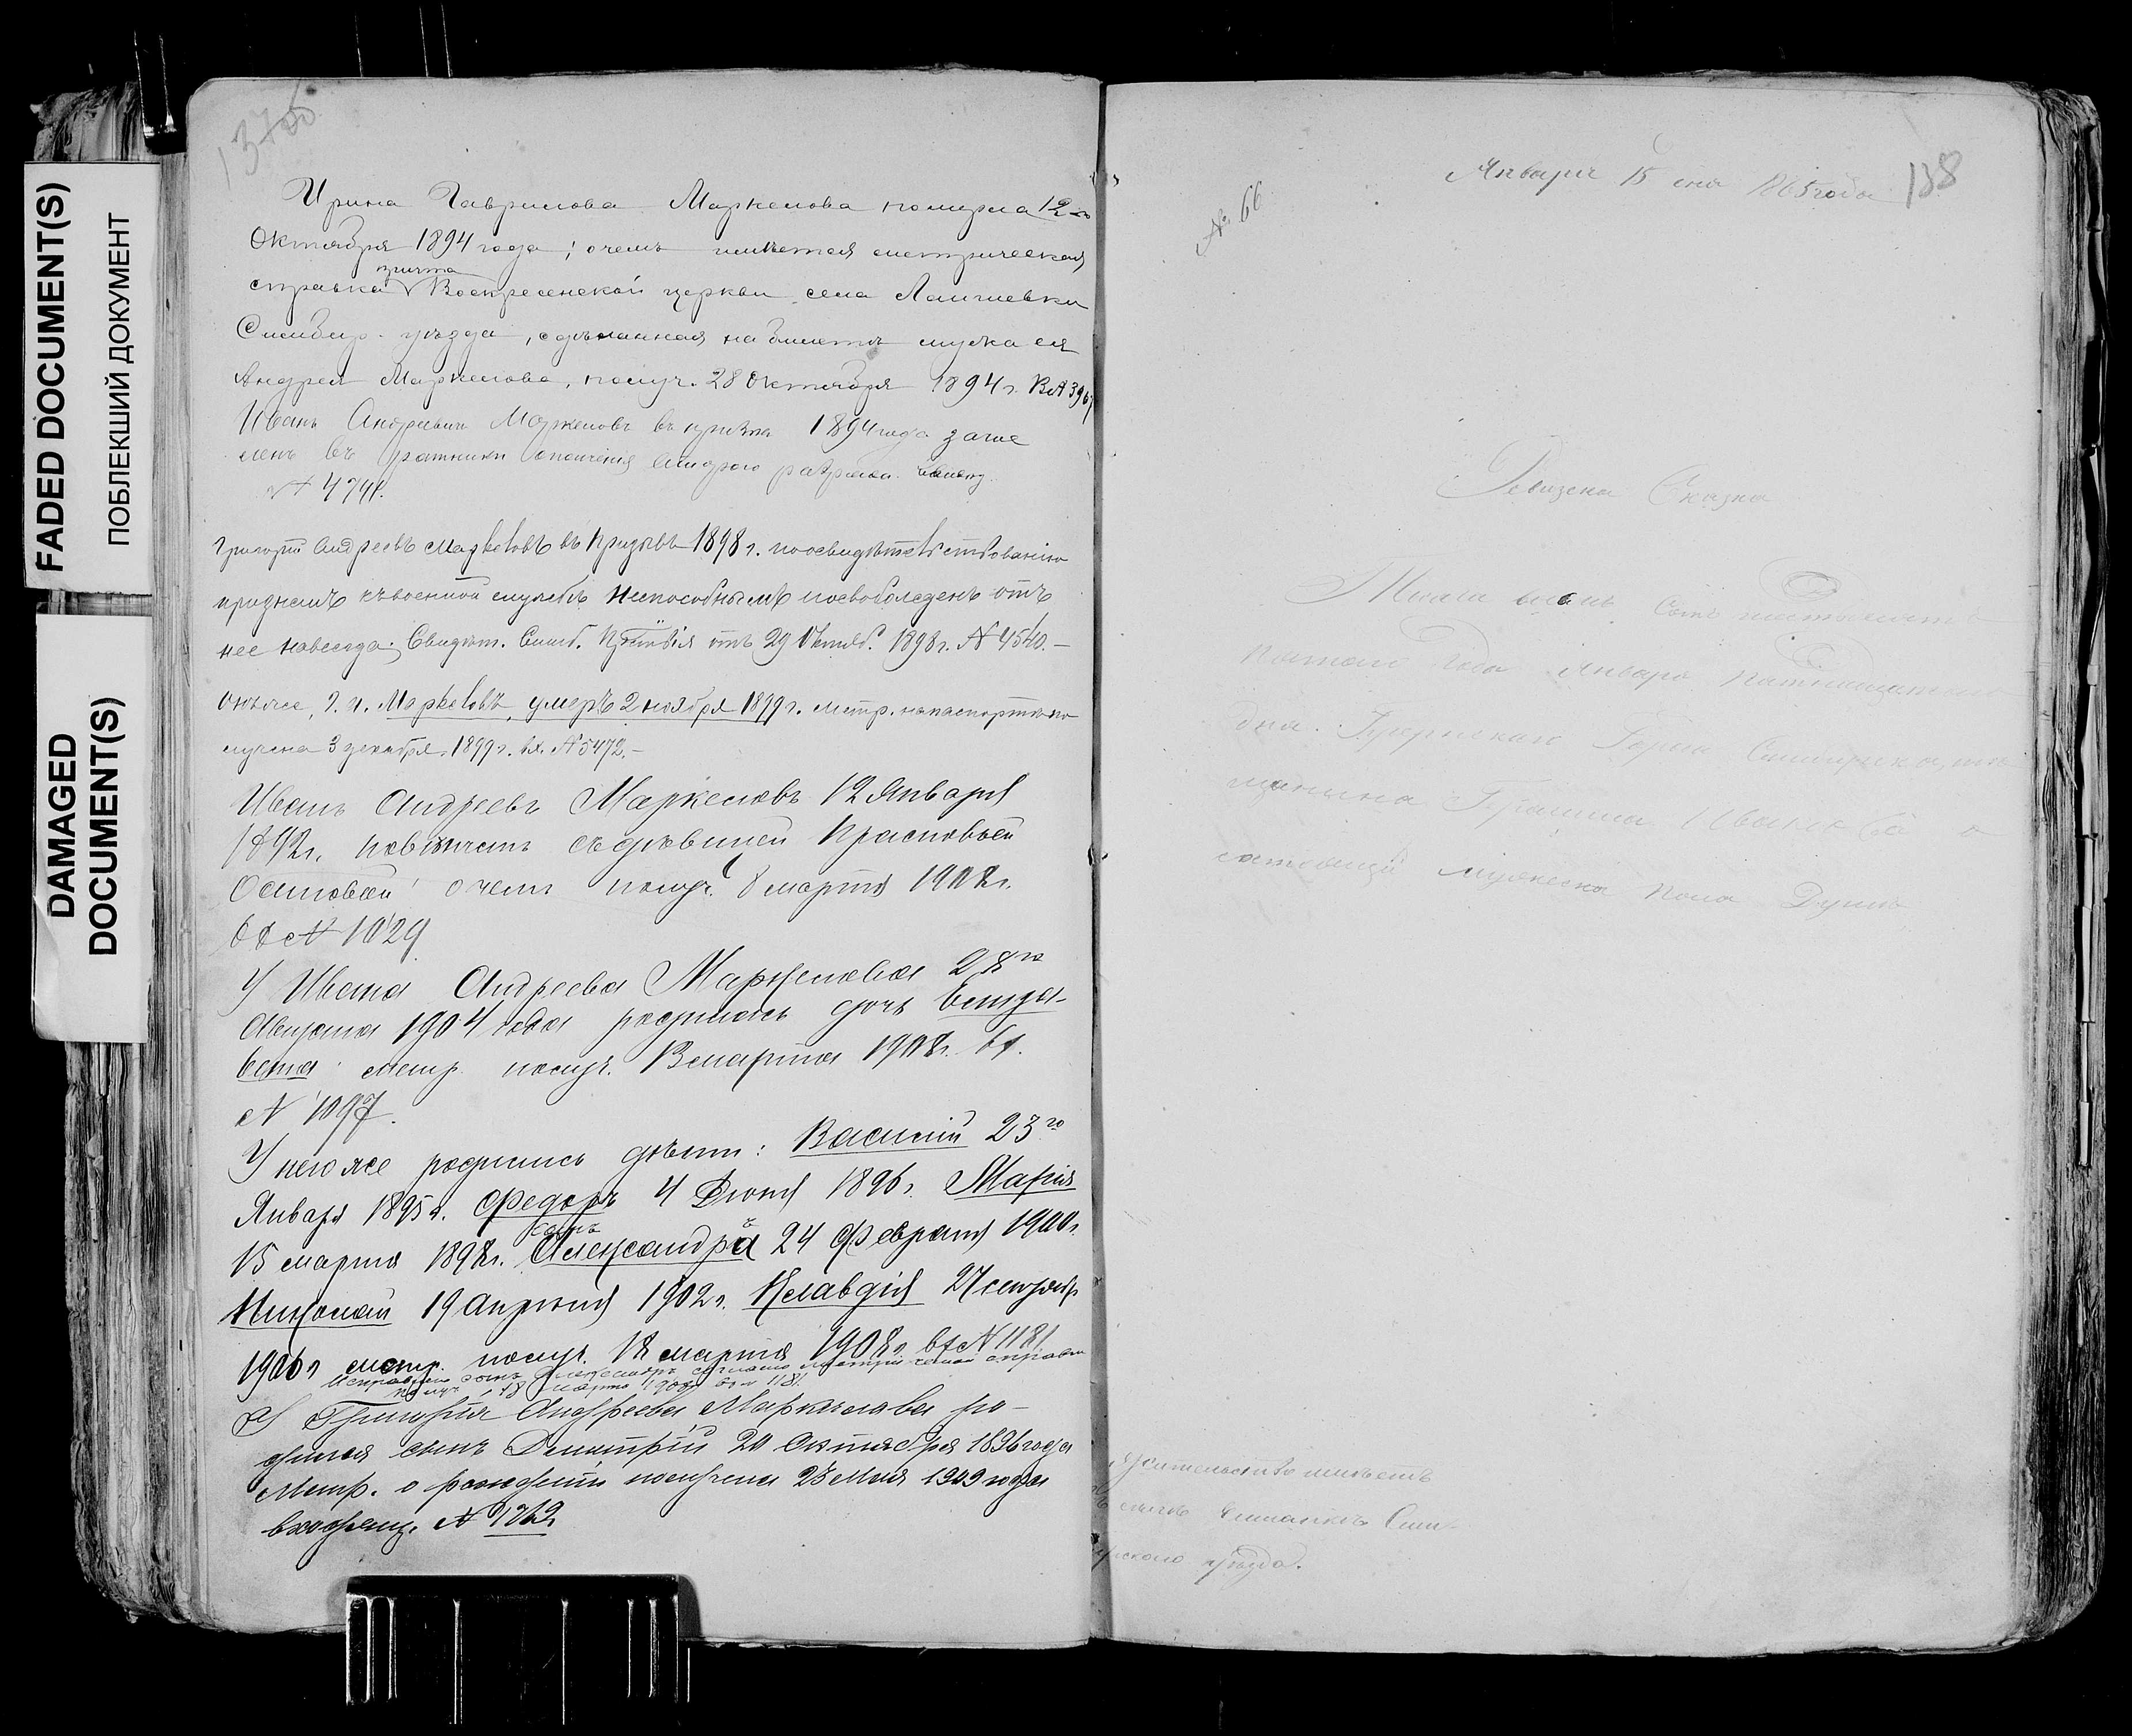 FADED DOCUMENT(S)
ПОБЛЕКШИЙ ДОКУМЕНТ
DAMAGED
DOCUMENT(S)
137об
Ирина Гаврилова Маркелова померла 12го
Октября 1894 года; о чемъ имѣется метрическая
причта
справка Воскресенской церкви села
Симбир. уѣзда, сдѣланная на билетѣ мужа ея
Андрея Маркелова, получ. 28 Октября 1894 г. Вх №
Иванъ Андреевич Маркеловъ въ призывъ 1894 года зачис
ленъ въ ратники ополченія втораго разряда.
№ 4741.
Григорій Андреевъ Маркеловъ въ призывъ 1898 г. по освидѣтельствованію
признанъ къ военной службѣ неспособнымъ и освобожденъ отъ
нее навсегда; Свидѣт. Симб. Пр̈исутствія отъ 29 Октяб. 1898 г. № 4540.—
Онъ же, Г. А. Маркеловъ, умеръ 2 ноября 1899 г. метр. на паспортѣ по
лучена 3 декабря 1899 г. вх. № 5472.—
Иванъ Андреевъ Маркеловъ 12 Января
1892г. повѣнчанъ съ дѣвицей Прасковьей
Осиповой о чемъ получ. 8 марта 1908г.
вх № 1029
У Ивана Андреева Маркелова 28го
Августа 1904 года родилась дочь Елиза-
вета метр. получ. 13 марта 1908г. вх.
№ 1097.
У него же родились дѣти: Василій 23го
Января 1895г. Федоръ 4 Іюня 1896г. Марія
сынъ
15 марта 1898г. Александръ 24 Февраля 1900г.
Николай 19 Апрѣля 1902г. Клавдія 27 сентября
1906г метр. получ. 18 марта 1908г. вх № 1181
Исправлен сынъ Александръ согласно метрической справки
получ. 18 марта 1908 вх № 1181.
У Григорія Андреева Маркелова ро-
дился сынъ Димитрій 20 Октября 1896 года
Метр. о рожденіи получена 23 Мая 1909 года
входящ. №
№ 66
Января 15 дня 1865 года
138
Ревизска Сказка
Тысяча восемь Сотъ
пятаго Года Января пятнадцатаго
дня. Губернскаго Города Симбирска, мѣ
щанина Иванова о
состоящей мужеска пола Душъ
жительство имѣетъ
Сим-
бирскаго уѣзда.